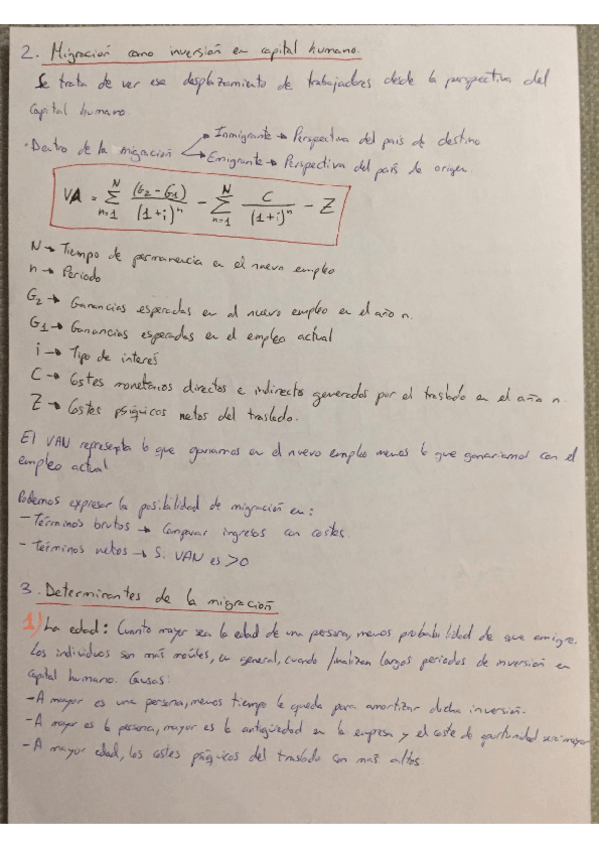 2. Migración como inversión en capital humano.
Se trata de ver ese desplazamiento de trabajadores desde la perspectiva del
capital humano.
· Dentro de la migración → Inmigrante → Perspectiva del país de destino
→ Emigrante → Perspectiva del país de origen.
VA = N∑n=1 (G2 - G1)/(1+i)^n - N∑n=1 C/(1+i)^n - Z
N → Tiempo de permanencia en el nuevo empleo
n → Periodo
G2 → Ganancias esperadas en el nuevo empleo en el año n.
G1 → Ganancias esperadas en el empleo actual
i → Tipo de interés
C → Costes monetarios directos e indirectos generados por el traslado en el año n.
Z → Costes psíquicos netos del traslado.
El VAN representa lo que ganamos en el nuevo empleo menos lo que ganaríamos con el
empleo actual
Podemos expresar la posibilidad de migración en:
- Términos brutos → Comparar ingresos con costes.
- Términos netos → Si VAN es >0
3. Determinantes de la migración
1) La edad: Cuanto mayor sea la edad de una persona, menos probabilidad de que emigre.
Los individuos son más móviles, en general, cuando finalizan largos periodos de inversión en
capital humano. Causas:
- A mayor es una persona, menos tiempo le queda para amortizar dicha inversión.
- A mayor es la persona, mayor es la antigüedad en la empresa y el coste de oportunidad será mayor
- A mayor edad, los costes psíquicos del traslado son más altos.